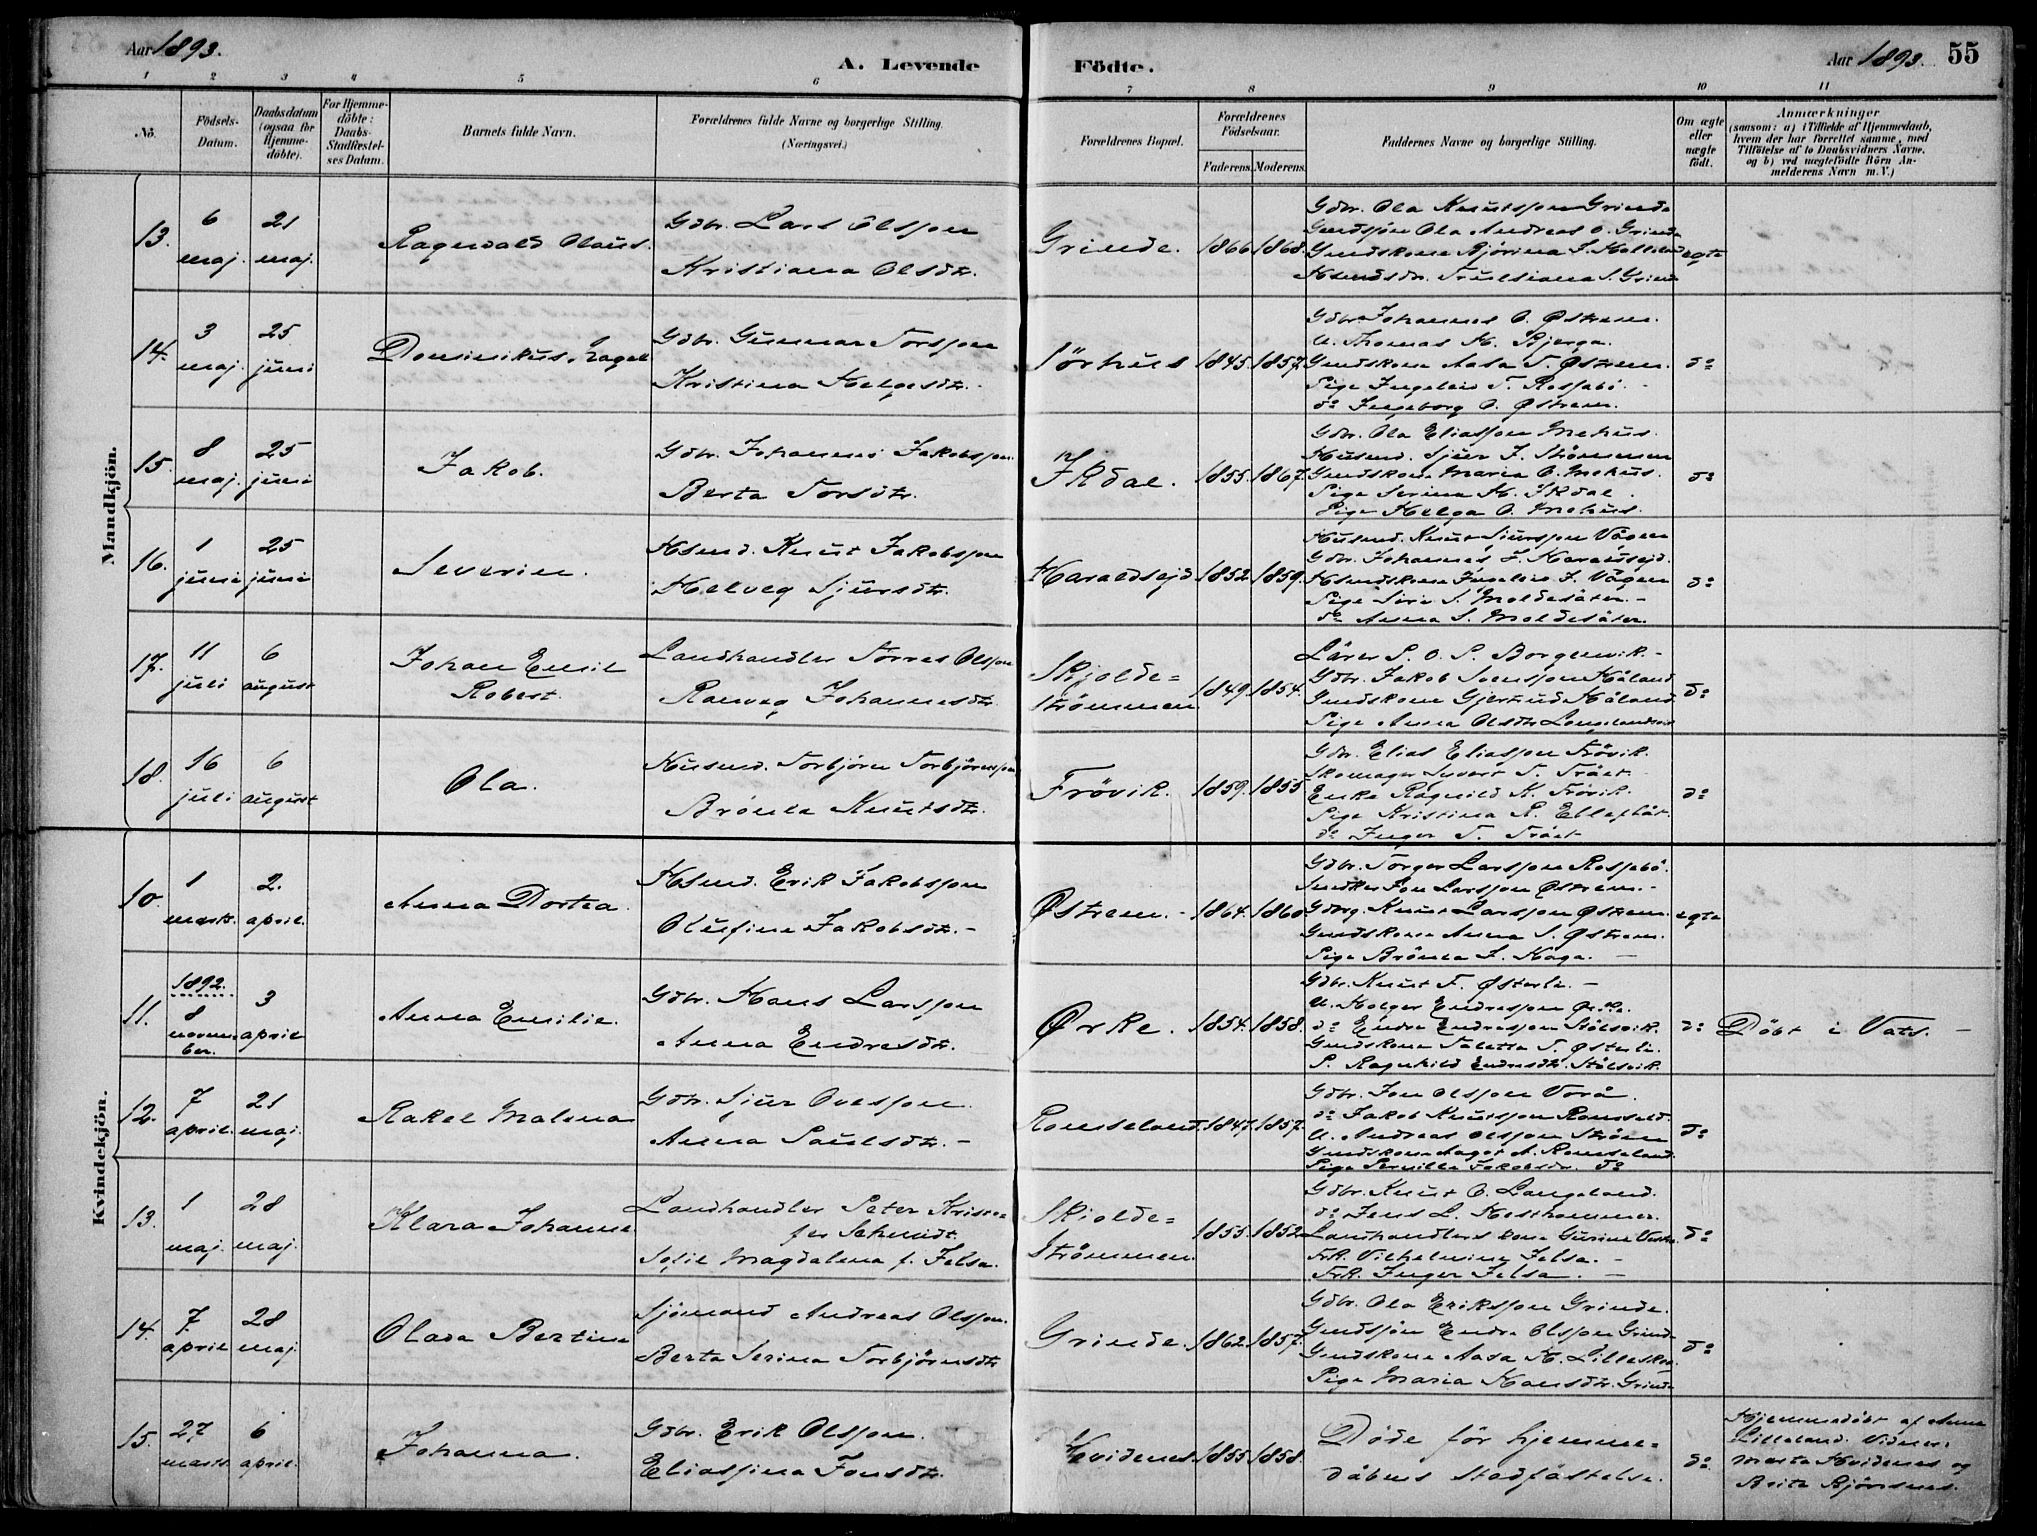 Aar 1893.
A. Levende Födte.
Aar 1893. 55
1 2 3 4 5 6 7 8 9 10 11
No.
Födsels-Datum.
Daabsdatum (ogsaa for Hjemme-döbte).
For Hjemme-döbte: Daabs-Stadfæstel-ses Datum.
Barnets fulde Navn.
Forældrenes fulde Navne og borgerlige Stilling. (Næringsvei.)
Forældrenes Bopæl.
Forældrenes Födselsaar.
Faderens. Moderens.
Faddernes Navne og borgerlige Stilling.
Om ægte eller uægte födt.
Anmærkninger
(saasom: a) i Tilfælde af Hjemmedaab,
hvem der har forrettet samme, med
Tilföielse af to Daabsvidners Navne,
og b) ved uægtefödte Börn An-
melderens Navn m. V.)
Mandkjön.
13. 6 maj. 21 maj. Ragnvald Olaus. Gdbr. Lars Olsson
Kristiana Olsdtr. Grinde. 1866 1868.
Gdbr. Ola Knutsson Grinde
Gmdssön Ola Andreas O. Grinde
Gmdskone Bjørina L. Helleland
Hsmdsdtr. Trulsiana S. Grinde
egte
14. 3 maj. 25 juni Dominikus Gdbr. Gunnar Torsson
Kristina Helgesdtr. Sørhus 1845. 1857.
Gdbr. Johannes O. Østrem.
U. Thomas H. Bjerga.
Gmdskone Aasa T. Østrem.
Pige Ingeleiv T. Rossebö.
do Ingeborg O. Østrem.
do
15. 8 maj. 25 juni Jakob. Gdbr. Johannes Jakobsson
Berta Torsdtr. Ikdal. 1855. 1867.
Gdbr. Ola Eliasson Mehus.
Husmd. Sjur J. Strømmen
Gmdskone Maria O. Mehus.
Pige Serina H. Ikdal.
Pige Helga O. Mehus.
do
16. 1 juni 25 juni Severin. Hsmd. Knut Jakobsson
Helveg Sjursdtr. Haraldseid 1852. 1859.
Husmd. Knut Sjursson Vågen
Gdbr. Johannes J. Haraldseid.
Hsmdskone Ingeleiv J. Vågen
Pige Siri S. Moldesäter.
do Anna S. Moldesäter.
do
17. 11 juli 6 august Johan Emil
Robert. Landhandler Torres Olsson
Ranveg Johannesdtr. Skjolde=
strømmen 1849. 1854.
Lärer P. O. S. Borgenvik.
Gdbr. Jakob Svensson Håland
Gmdskone Gjertrud Håland
Pige Anna Olsdtr. Langelandseid
do
18. 16 juli 6 august Ola. Husmd. Torbjörn Torbjörnsson
Brönla Knutsdtr. Frövik. 1859. 1855.
Gdbr. Elias Eliasson Frövik.
Skomager Syvert T. Trået.
Enke Ragnild K. Frövik.
Pige Kristina R.
do Inger T. Trået
do
Kvindekjön.
10. 1 marts. 2. april. Anna Dortea. Hsmd. Erik Jakobsson
Olufine Jakobsdtr. Østrem. 1864. 1860
Gdbr. Torger Larsson Rossebö.
Snedker Jon Larsson Østrem.
Gdbrg. Knut Larsson Østrem.
Gmdskone Anna S. Østrem.
Pige Brönla J. Haga.
egte
11. 1892. 8 novem-
ber. 3 april Anna Emilie. Gdbr. Hans Larsson
Anna Endresdtr. Ørke. 1854. 1858.
Gdbr. Knut F. Østerli.
U. Holger Endresson Ørke.
do Endre Endresson Stölsvik.
Gmdskone Taletta T. Østerli.
P. Ragnhild Endresdtr. Stölsvik.
do Döbt i Vats.
12. 7 april. 21 maj. Rakel Malena Gdbr. Sjur Ovesson.
Anna Paulsdtr. Romseland. 1847. 1857.
Gdbr. Jon Olsson Vorå.
do Jakob Knutsson Romseld.
U. Andreas Olsson Strömm
Gmdskone Aaget A. Romseland.
Pige Pernilla Jakobsdtr. do
do
13. 1 maj. 28 maj. Klara Johanne Landhandler Peter Kristo=
fer Schmidt.
Sofie Magdalena f. Jelsa. Skjolde=
strømmen. 1855. 1852.
Gdbr. Knut O. Langeland.
do Jens L. Hesthammer.
Landhandlers kone Gurine
Frk. Vilhelmine Jelsa.
Frk. Inger Jelsa.
do
14. 7. april 28 maj Olava Bertine Sjömand Andreas Olsson.
Berta Serina Torbjörnsdtr. Grinde. 1862. 1857.
Gdbr. Ola Eriksson Grinde.
Gmdssön Endre Olsson Grinde
Gmdskone Aasa H. Lilleskog
Pige Maria Hansdtr. Grinde
do
15. 27 marts. 6 april. Johanna. Gdbr. Erik Olsson.
Eliassina Jonsdtr. Hvidenes. 1855. 1858.
Döde för hjemme=
dåbens Stadfästelse.
do.
Hjemmedöbt af Anna
Lilleland. Vidner:
Marta Hvidenes og
Berta Bjørnsnes.